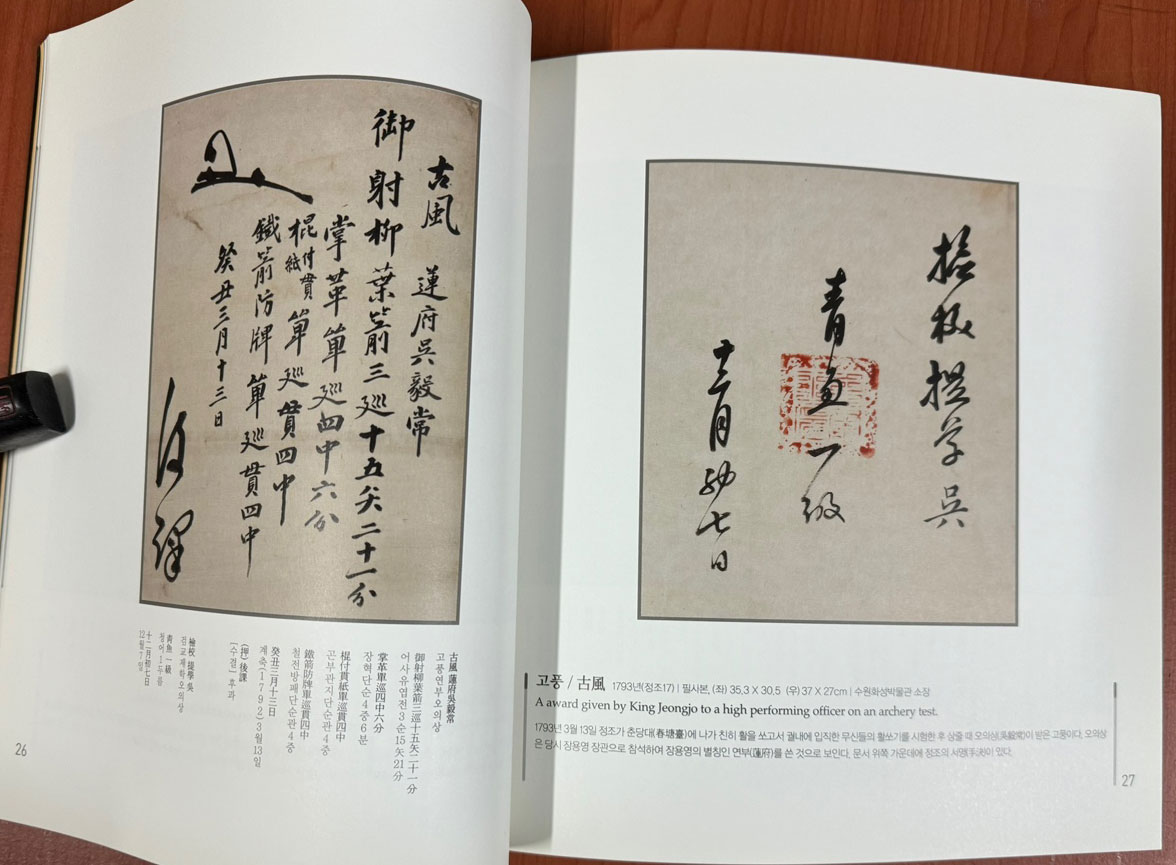 古風
蓮府吳毅常
御射柳葉箭三巡十五矢二十一分
掌革單巡四中六分
棍付紙貫單巡貫四中
鐵箭防牌單巡貫四中
癸丑三月十三日
後課
古風 蓮府吳毅常
고풍연부오의상
御射柳葉箭三巡十五矢二十一分
어사유엽전3순15矢21分
掌革單巡四中六分
장혁단순4중6분
棍付貫紙單巡貫四中
곤부관지단순관4중
鐵箭防牌單巡貫四中
철전방패단순관4중
癸丑三月十三日
계축(1792)3월13일
(押)後課
[수결] 후과
檢校 提學 吳
검교제학오의상
靑魚一級
청어1두름
十二月初七日
12월7일
26
檢校提學吳
靑魚一級
十二月初七日
고풍 / 古風 1793년(정조17) | 필사본, (좌) 35.3 X 30.5 (우) 37 X 27cm | 수원화성박물관 소장
A award given by King Jeongjo to a high performing officer on an archery test.
1793년 3월 13일 정조가 춘당대(春塘臺)에 나가 친히 활을 쏘고서 궐내에 입직한 무신들의 활쏘기를 시험한 후 상줄 때 오의상(吳毅常)이 받은 고풍이다. 오의상
은 당시 장용영 장관으로 참석하여 장용영의 별칭인 연부(蓮府)를 쓴 것으로 보인다. 문서 위쪽 가운데에 정조의 서명(手決)이 있다.
27